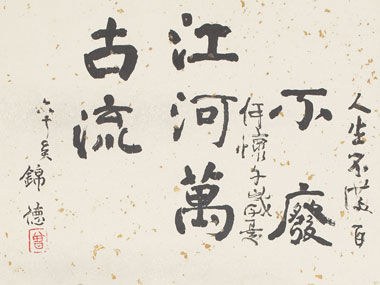 人生不滿百
不廢
何懷千歲
江河萬
古流
六十 錦德
曾